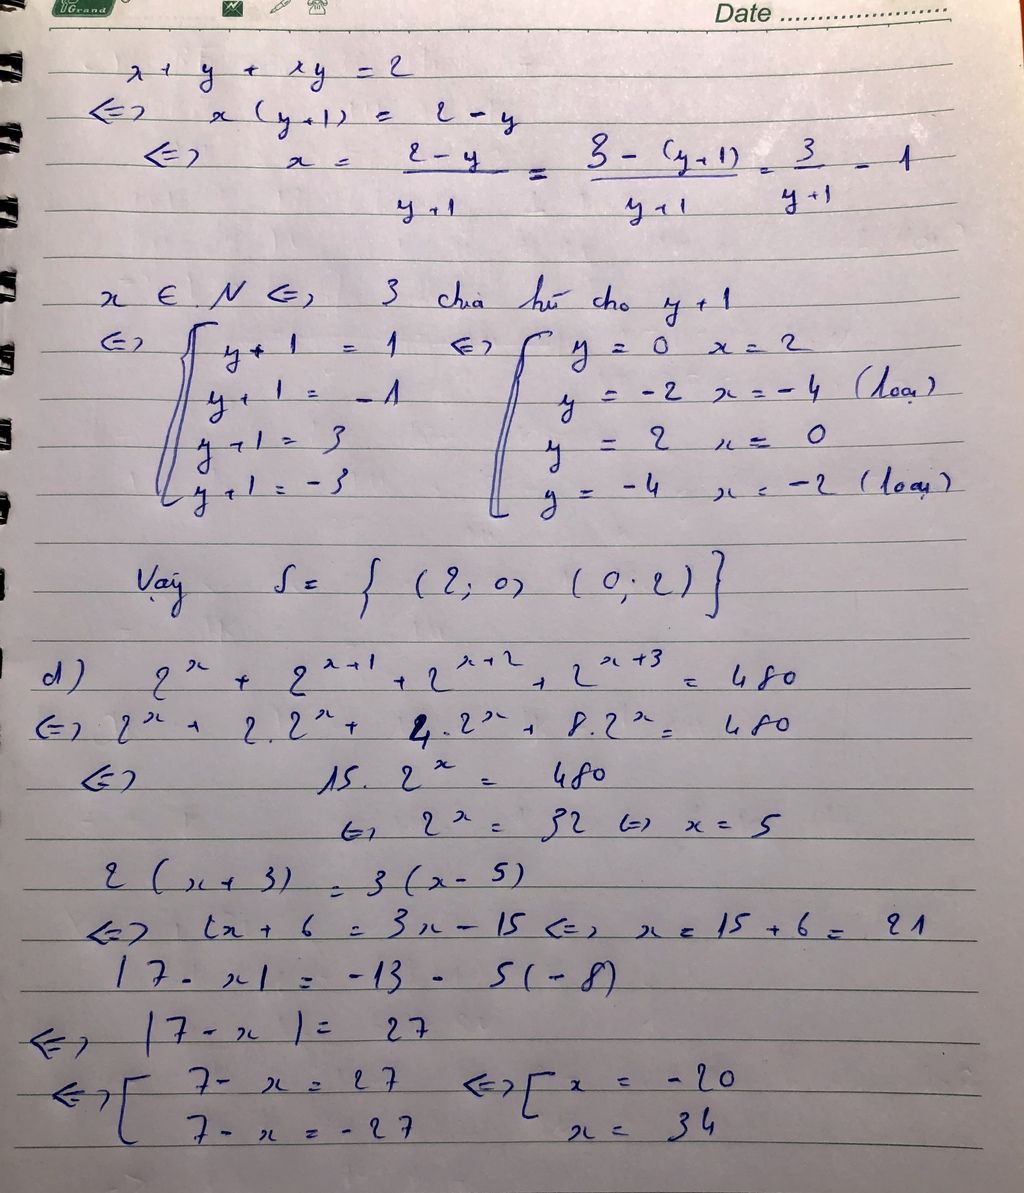 Grand
Date ......................
x + y + xy = 2
<=> x (y+1) = 2 - y
<=> x = (2 - y)/(y+1) = (3 - (y+1))/(y+1) = 3/(y+1) - 1
x ∈ N <=> 3 chia hết cho y + 1
<=> { y + 1 = 1 <=> [ y = 0 x = 2
y + 1 = -1 y = -2 x = -4 (loại)
y + 1 = 3 y = 2 x = 0
y + 1 = -3 y = -4 x = -2 (loại)
Vậy S = { (2; 0) (0; 2) }
d) 2^x + 2^(x+1) + 2^(x+2) + 2^(x+3) = 480
<=> 2^x + 2.2^x + 4.2^x + 8.2^x = 480
<=> 15. 2^x = 480
<=> 2^x = 32 <=> x = 5
2 (x + 3) = 3 (x - 5)
<=> 2x + 6 = 3x - 15 <=> x = 15 + 6 = 21
|7 - x| = -13 - 5(-8)
<=> |7 - x| = 27
<=> [ 7 - x = 27 <=> [ x = -20
7 - x = -27 x = 34